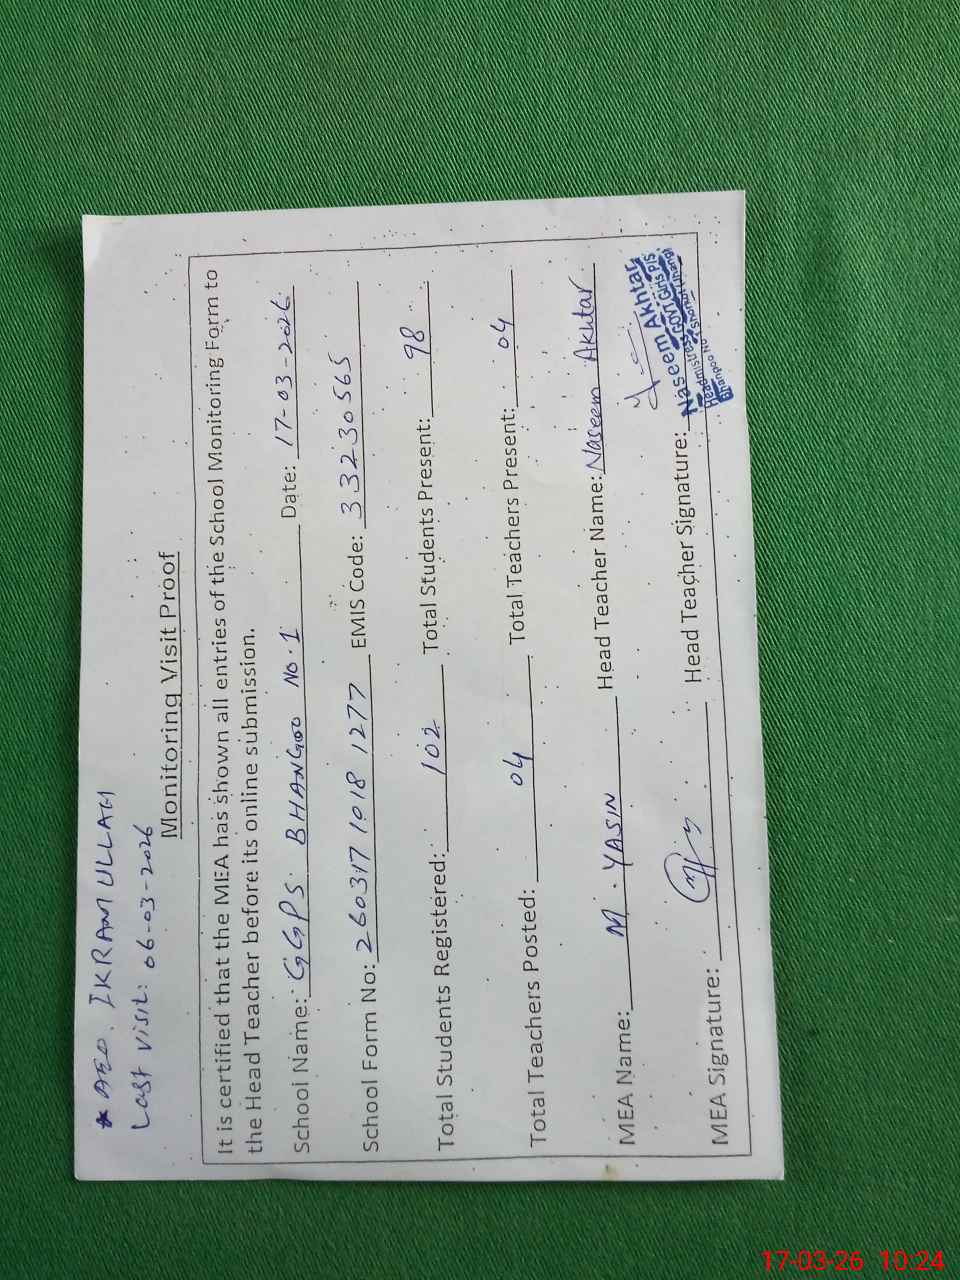 * AEO. IKRAM ULLAH
Last Visit: 06-03-2026
Monitoring Visit Proof
It is certified that the MEA has shown all entries of the School Monitoring Form to
the Head Teacher before its online submission.
School Name: GGPS. BHANGOO NO.1 Date: 17-03-2026
School Form No: 260317 1018 1277 EMIS Code: 33230565
Total Students Registered: 102 Total Students Present: 98
Total Teachers Posted: 04 Total Teachers Present: 04
MEA Name: M. YASIN Head Teacher Name: Naseem Akhtar
MEA Signature: Head Teacher Signature:
Naseem Akhtar
Headmistress Govt Girls P/S
Bhangoo No
17-03-26 10:24